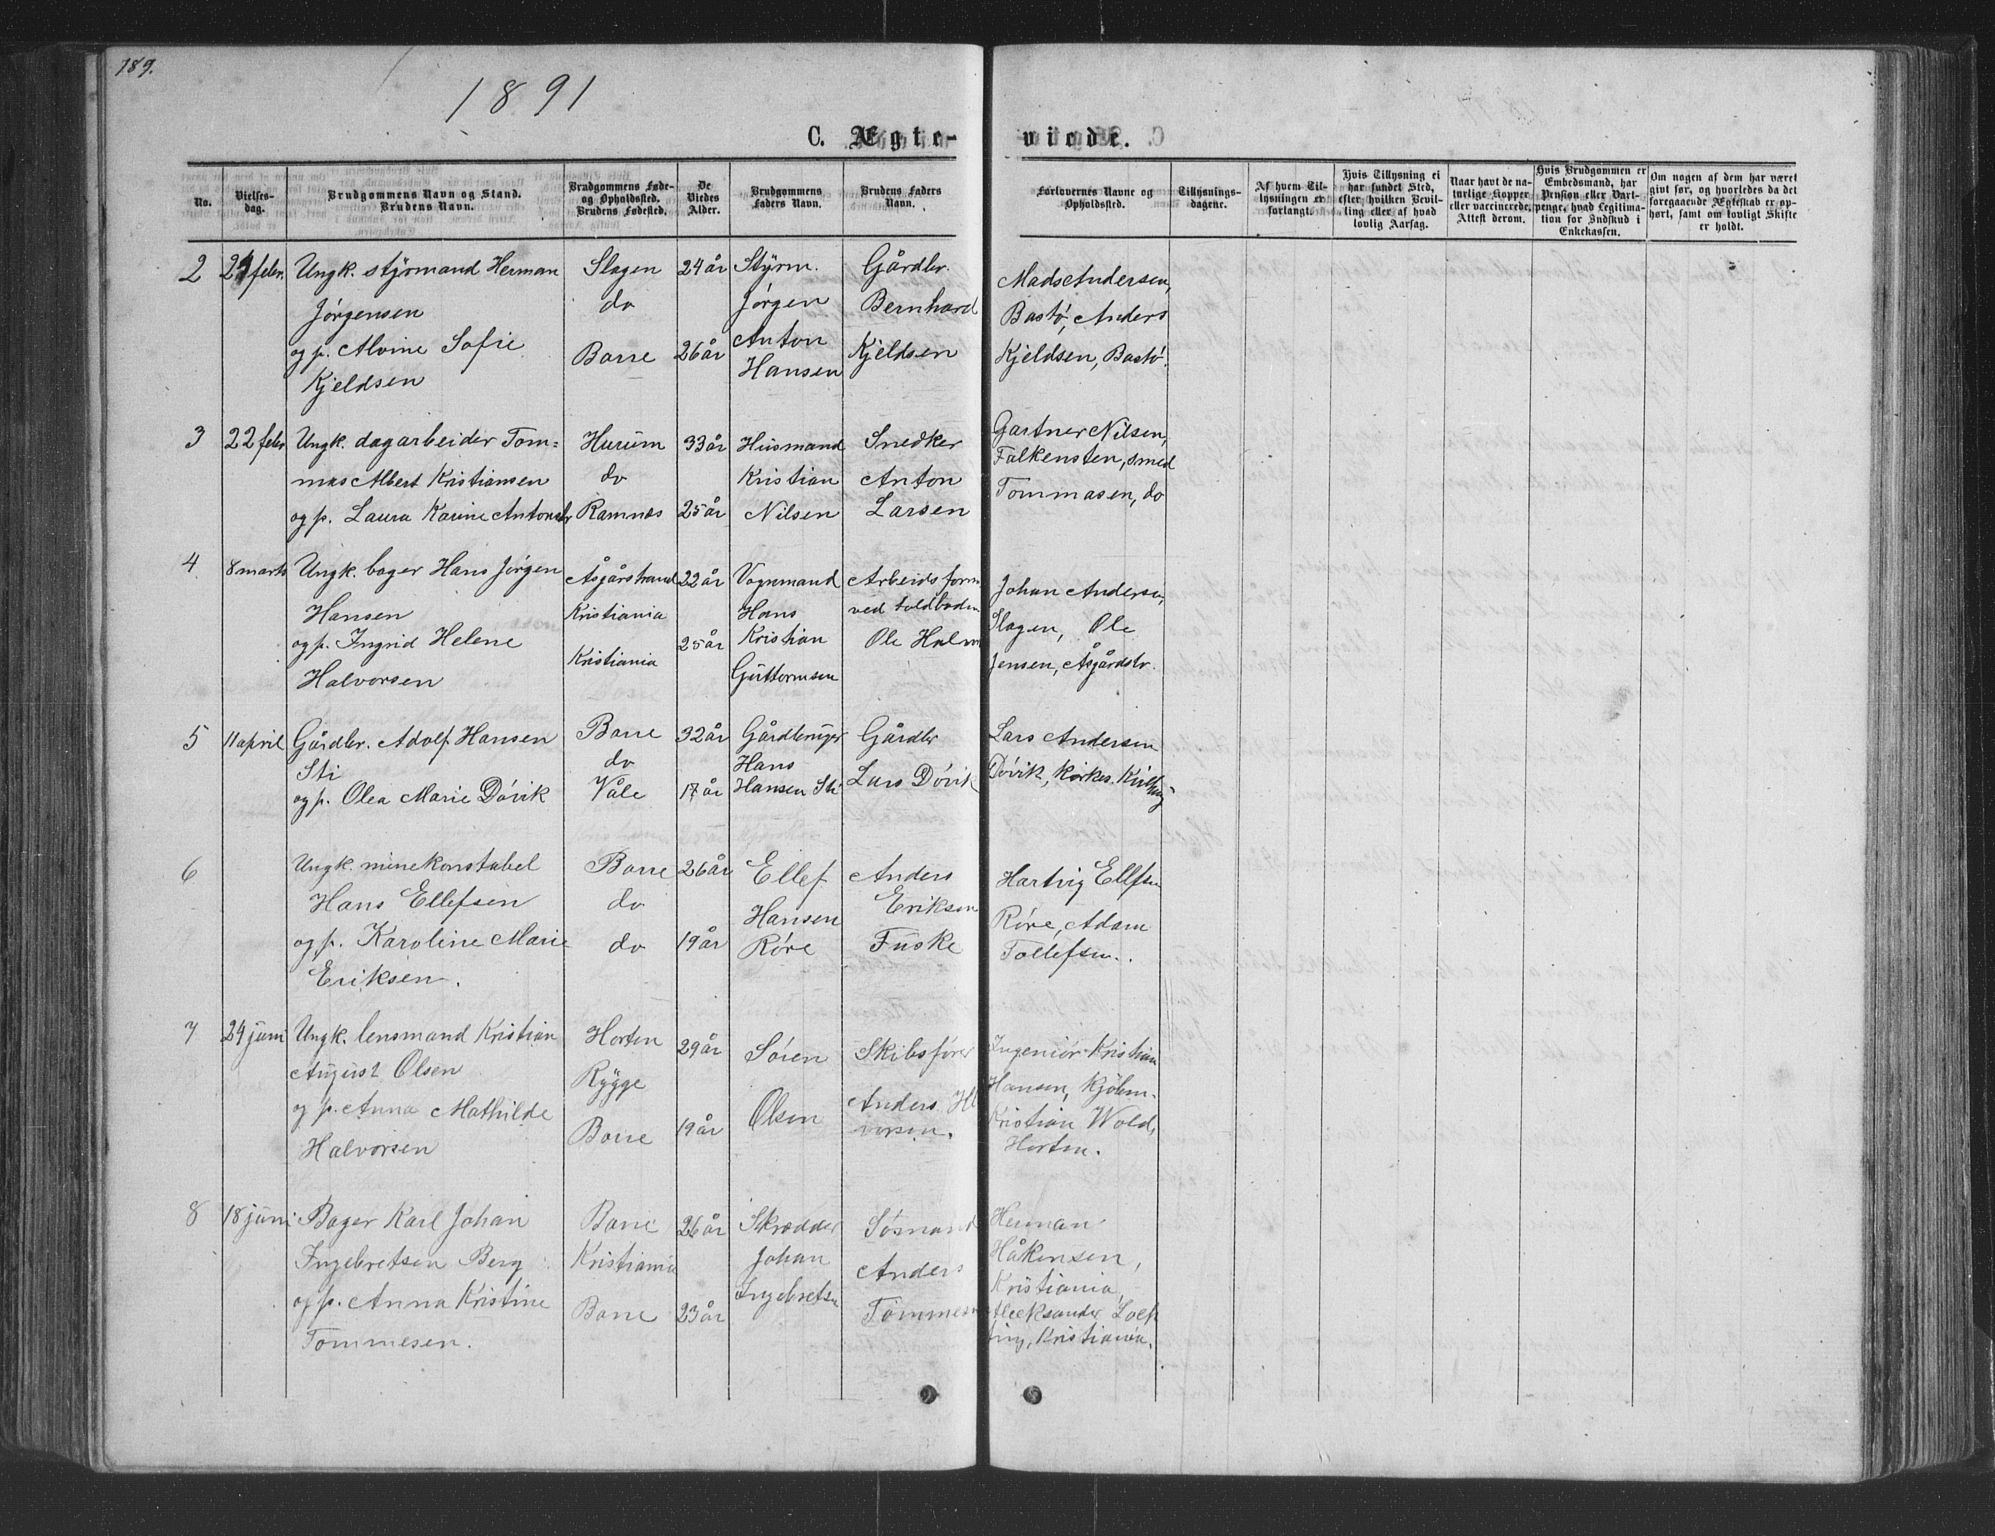 189.
1891
C. Ægte-viede.
No.
Vielses-dag.
Brudgommens Navn og Stand.
Brudens Navn.
Brudgommens Føde-
og Opholdssted.
Brudens Fødested.
De
Viedes
Alder.
Brudgommens
Faders Navn.
Brudens Faders
Navn.
Forlovernes Navne og
Opholdssted.
Tillysnings-
dagene.
Af hvem Til-
lysningen er
forlangt.
Hvis Tillysning ei
har fundet Sted,
efter hvilken Bevil-
ling eller af hvad
lovlig Aarsag.
Naar havt de na-
turlige Kopper
eller vaccinerede,
Attest derom.
Hvis Brudgommen er
Embedsmand, har
Pension eller Vart-
penge, hvad Legitima-
tion for Indskud i
Enkekassen.
Om nogen af dem har været
gift før, og hvorledes da det
foregaaende Ægteskab er op-
hørt, samt om lovligt Skifte
er holdt.
2
febr.
Ungk. styrmand Herman
Jørgensen
og p. Alvine Sofie
Kjeldsen
Slagen
do
Borre
24 år
26 år
Styrm.
Jørgen
Anton
Hansen
Gårdbr.
Bernhard
Kjeldsen
Mads Andersen,
Bastø, Anders
Kjeldsen, Bastø.
3
22 febr
Ungk. dagarbeider Tom=
mas Albert Kristiansen
og p. Laura Karine Antonsdr
Hurum
do
Ramnæs
33 år
25 år
Husmand
Kristian
Nilsen
Snedker
Anton
Larsen
Gartner Nilsen,
Falkensten, smed
Tommasen, do
4
8 marts
Ungk. bager Hans Jørgen
Hansen
og p. Ingrid Helene
Halvorsen
Åsgårstrand
Kristiania
Kristiania
22 år
25 år
Vognmand
Hans
Kristian
Guttormsen
Arbeidsform
ved toldboden
Ole Halvor
Johan Andersen,
Slagen, Ole
Jensen, Åsgårdstr.
5
11 april
Gårdbr. Adolf Hansen
Sti
og p. Olea Marie Dövik
Borre
do
Våle
32 år
17 år
Gårdbruger
Hans
Hansen Sti
Gårdbr
Lars Dövik
Lars Andersen
Dövik, Kirkes.
6
Ungk. minekonstabel
Hans Ellefsen
og p. Karoline Marie
Eriksen.
Borre
do
do
26 år
19 år
Ellef
Hansen
Röre
Anders
Eriksen
Fuske
Hartvig Ellefsen
Röre, Adam
Tollefsen.
7
24 juni
Ungk. lensmand Kristian
August Olsen
og p. Anna Mathilde
Halvorsen
Horten
Rygge
Borre
29 år
19 år
Sören
Olsen
Skibsfører
Anders Hl
vorsen.
Ingeniör Kristian
Hansen, Kjöben.
Kristian Wold,
Horten.
8
18 juni
Bager Karl Johan
Ingebretsen Berg
og p. Anna Kristine
Tommesen.
Borre
Kristiania
Borre
26 år
23 år
Skrædder
Johan
Ingebretsen
Sömand
Anders
Tommesen
Herman
Håkensen,
Kristiania,
Aleksander
Kristiania.